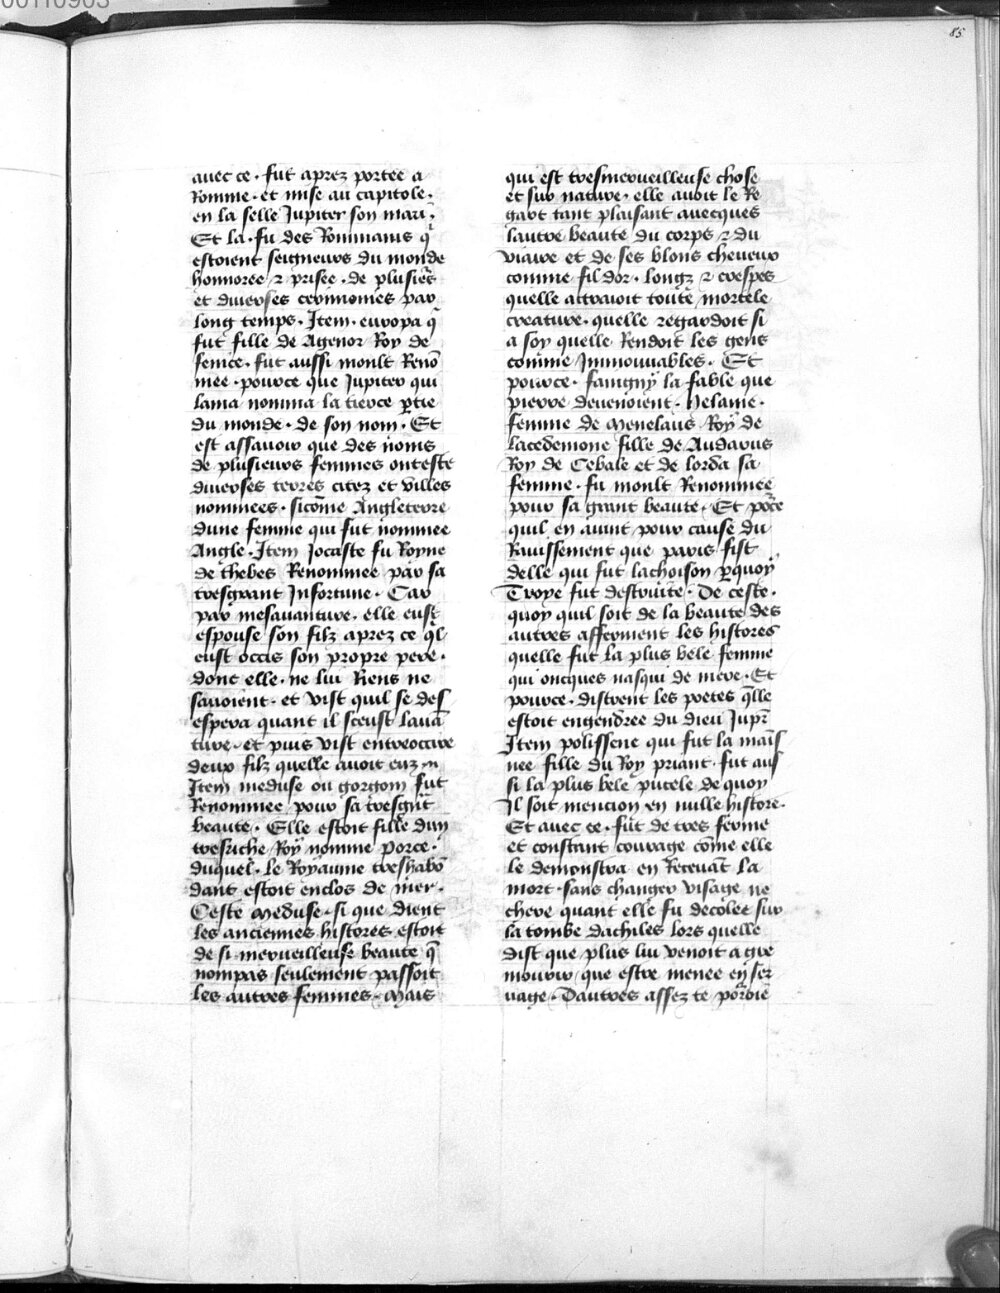 85
auec ce . fut aprez portee a
Romme . et mise au capitole .
en la selle Jupiter son mari .
Et la . fu des Rommains q̄
estoient seigneurs du monde
honnoree ⁊ prisee . de plusie͛s
et diuerses cerimonies par
long temps . Item . europa q̄
fut fille de Agenor Roy de
fenice . fut aussi moult Renō
mee . pource que Jupiter qui
lama nomma la tierce ꝑtie
du monde . de son nom . Et
est assauoir que des noms
de plusieurs femmes ont este
diuerses terres citez et villes
nommees . sicōme Angleterre
dune femme qui fut nommee
Angle . Item Jocaste fu Royne
de thebes Renommee par sa
tresgrant Infortune . Car
par mesauanture . elle eust
espouse son filz aprez ce ql
eust occis son propre pere .
dont elle . ne lui Riens ne
sauoient . et vist quil se des
espera quant il sceust lauā
ture . et puis vist entreoccire
deux filz quelle auoit eux
Item meduse ou gorgon fut
Renommee pour sa tresgr̄t
beaute . Elle estoit fille dun
tresriche Roy nomme porce .
duquel . le Royaume treshabō
dant estoit enclos de mer .
Ceste Meduse . si que dient
les anciennes histores estoit
de si merueilleuse beaute q̄
nompas seulement passoit
les autres femmes . Mais
qui est tresmerueilleuse chose
et sur nature . elle auoit le Re
gart tant plaisant auecques
lautre beaute du corps ⁊ du
viaire et de ses blons cheueux
comme fil dor . longz ⁊ crespes
quelle attraioit toute mortele
creature . quelle regardoit si
a soy quelle Rendoit les gens
comme Immouuables . Et
pource . faingny la fable que
pierre deuenoient . Helaine .
femme de Menelaus Roy de
lacedemone fille de Andarus
Roy de Cebale et de lorda sa
femme . fu moult Renommee
pour sa grant beaute . Et po͛ce
quil en auint pour cause du
Rauissement que paris fist
delle qui fut lachoison ꝑquoy
Troye fut destruite . De ceste .
quoy quil soit de la beaute des
autres afferment les histores
quelle fut la plus bele femme
qui oncques nasqui de mere . Et
pource . distrent les poetes q̄lle
estoit engendree du dieu Jup̄r
Item polissene qui fut la mais
nee fille du Roy priant . fut aus
si la plus bele pucele de quoy
Il soit mencion en nulle histore .
Et auec ce . fut de tres ferme
et constant courage cōme elle
le demonstra en Receuāt la
mort . sans changer visage ne
chere quant elle fu decolee sur
la tombe dachiles lors quelle
dist que plus lui venoit a gre
mourir . que estre menee en ser
uage . Dautres assez te po͛roie